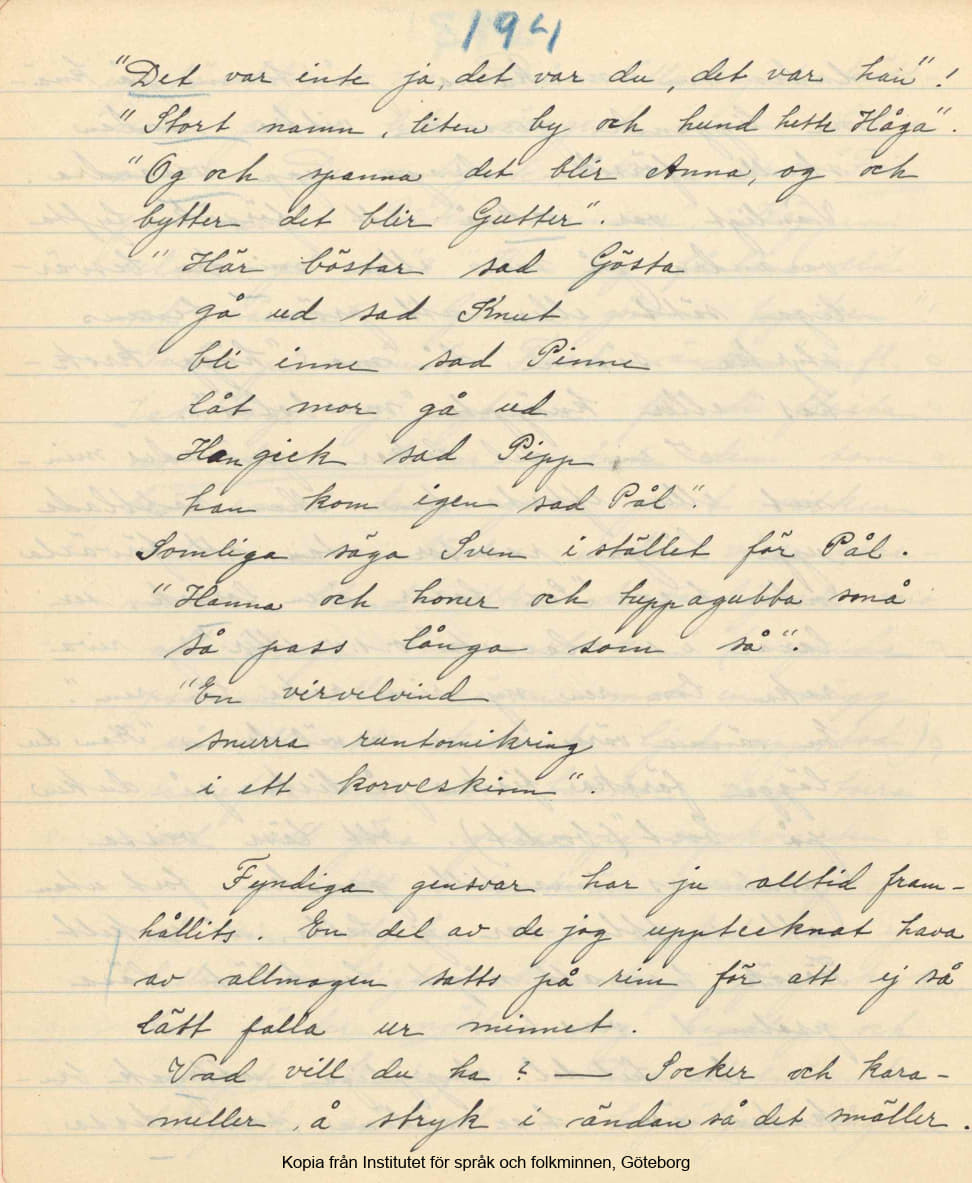 194
"Det var inte ja, det var du, det var han"!
"Stort namn, liten by och hund hette Håga".
"Og och spanna det blir Anna, og och
bytter det blir Gutter".
"Här böstar sad Gösta
gå ud sad Knut
bli inne sad Pinne
låt mor gå ud
Han gick sad Pipp
han kom igen sad Pål".
Somliga säga Sven i stället för Pål.
"Hanna och honer och tuppagubba små
så pass långa som så".
"En virvelvind
snurra runtomikring
i ett korveskinn".
Fyndiga gensvar har ju alltid fram-
hållits. En del av de jag upptecknat hava
av allmogen satts på rim för att ej så
lätt falla ur minnet.
Vad vill du ha? — Socker och kara-
meller, å stryk i ändan så det smäller.
Kopia från Institutet för språk och folkminnen, Göteborg